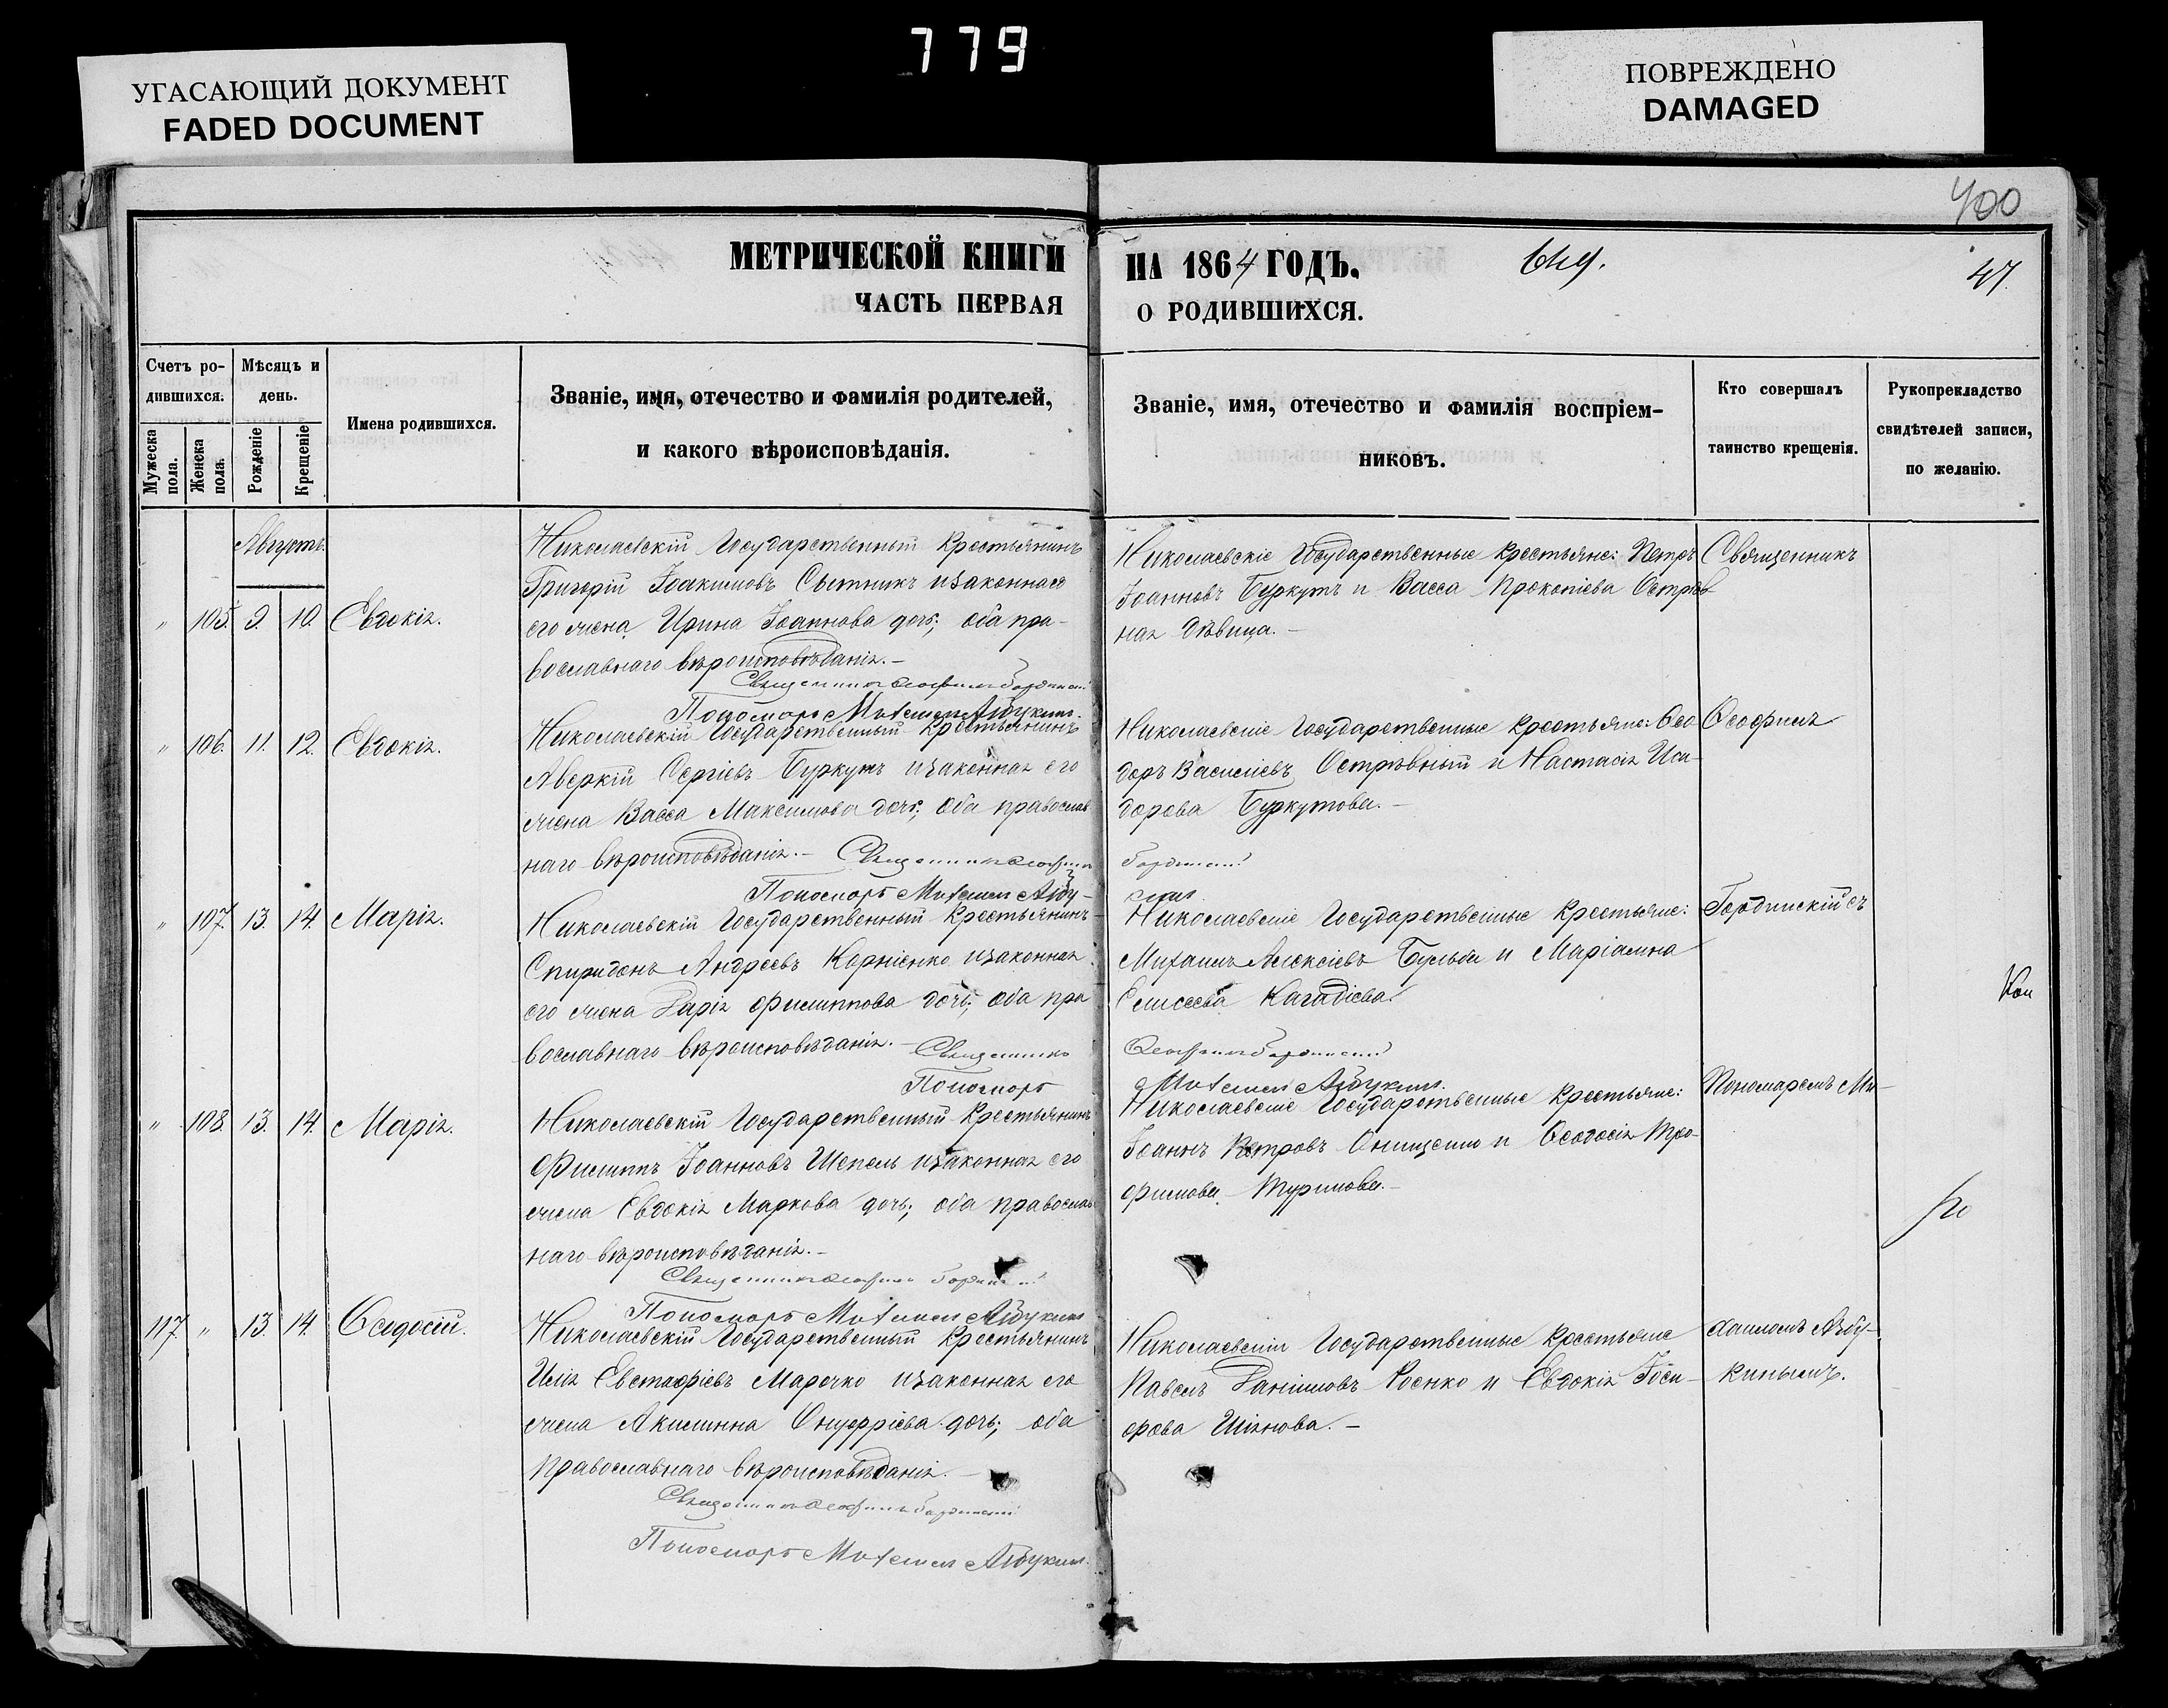 779
УГАСАЮЩИЙ ДОКУМЕНТ
FADED DOCUMENT
ПОВРЕЖДЕНО
DAMAGED
400
МЕТРИЧЕСКОЙ КНИГИ
НА 1864 ГОДЪ.
47
ЧАСТЬ ПЕРВАЯ
О РОДИВШИХСЯ.
Счетъ ро-
дившихся.
Мужеска пола.
Женска пола.
Мѣсяцъ и
день.
Рожденіе
Крещеніе
Имена родившихся.
Званіе, имя, отечество и фамилія родителей,
и какого вѣроисповѣданія.
Званіе, имя, отечество и фамилія воспріем-
никовъ.
Кто совершалъ
таинство крещенія.
Рукоприкладство
свидѣтелей записи,
по желанію.
Августъ.
" 105. 9. 10. Евдокія.
Николаевскій Государственный крестьянинъ
Григорій Іоакимовъ Сытникъ изаконная
его жена Ирина Іоаннова дочь; оба пра-
вославнаго вѣроисповѣданія.—
Николаевскіе Государственные крестьяне: Петръ
Іоанновъ Буркутъ и Васса Прокопіева Острів
ная дѣвица.—
Священникъ
Священникъ Ѳеофилъ Бординскій
Пономарь Михаилъ Азбукинъ.
" 106. 11. 12. Евдокія.
Николаевскій Государственный крестьянинъ
Аверкій Сергіевъ Буркутъ изаконная его
жена Васса Максимова дочь; оба православ
наго вѣроисповѣданія.— Священникъ Ѳеофилъ
Пономарь Михаилъ Азбу-
Николаевскіе Государственные крестьяне: Ѳео
доръ Василіевъ Острівный и Настасія Иси-
дорова Буркутова.—
Ѳеофилъ
" 107. 13. 14. Марія.
Николаевскій Государственный крестьянинъ
Спиридонъ Андреевъ Корніенко изаконная
его жена Дарія Филиппова дочь; оба пра
вославнаго вѣроисповѣданія.— Священникъ
Пономарь
Николаевскіе Государственные крестьяне:
Михаилъ Алексіевъ Бульба и Маріамна
Елисеева
Михаилъ Азбукинъ.
" 108. 13. 14. Марія.
Николаевскій Государственный крестьянинъ
Филиппъ Іоанновъ Шепель изаконная его
жена Евдокія Маркова дочь; оба православ
наго вѣроисповѣданія.—
Николаевскіе Государственные крестьяне:
Іоаннъ Петровъ Онищенко и Ѳеодосія Тро-
фимова Туримова.—
Пономаремъ Ми-
Пономарь Михаилъ Азбукинъ
117. " 13. 14. Ѳеодосій.
Николаевскій Государственный крестьянинъ
Илія Евстафіевъ Марочко изаконная его
жена Акилинна Онуфріева дочь; оба
православнаго вѣроисповѣданія.—
Николаевскіи Государственные крестьяне
Павелъ Даніиловъ и Евдокія Іоси-
фова
хаиломъ Азбу-
кинымъ.
Пономарь Михаилъ Азбукинъ.